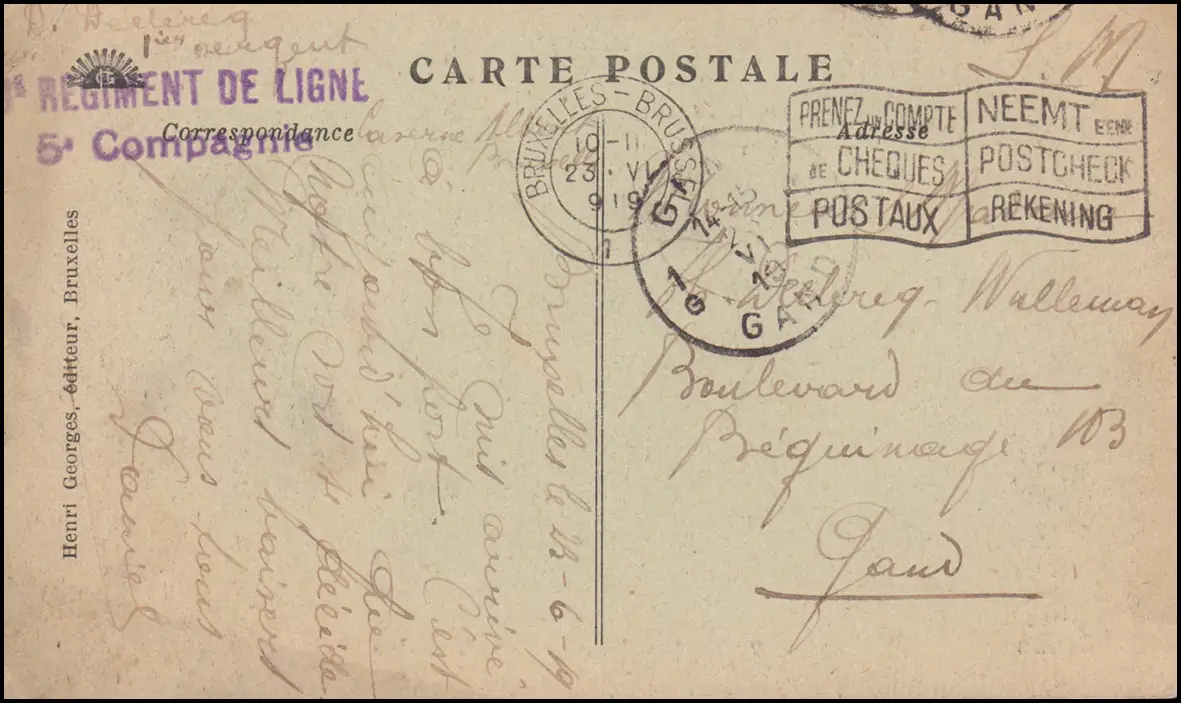 D. Declercq
1ier sergent
REGIMENT DE LIGNE
5e Compagnie
Caserne
CARTE POSTALE
Correspondance
Adresse
S. M
GAN
BRUXELLES-BRUSSEL
10-11
23·VI
919
1
PRENEZ UN COMPTE
DE CHEQUES
POSTAUX
NEEMT EENE
POSTCHECK
REKENING
14-15
VI
19
1G GAND
Bruxelles le 23-6-19
Je suis arrivé
à bon port. C'est
aujourd'hui que
notre sort se décide
Meilleurs baisers
pour vous tous
Daniel
Declercq-Walleman
Boulevard du
Béguinage 103
Gand
Henri Georges, éditeur, Bruxelles